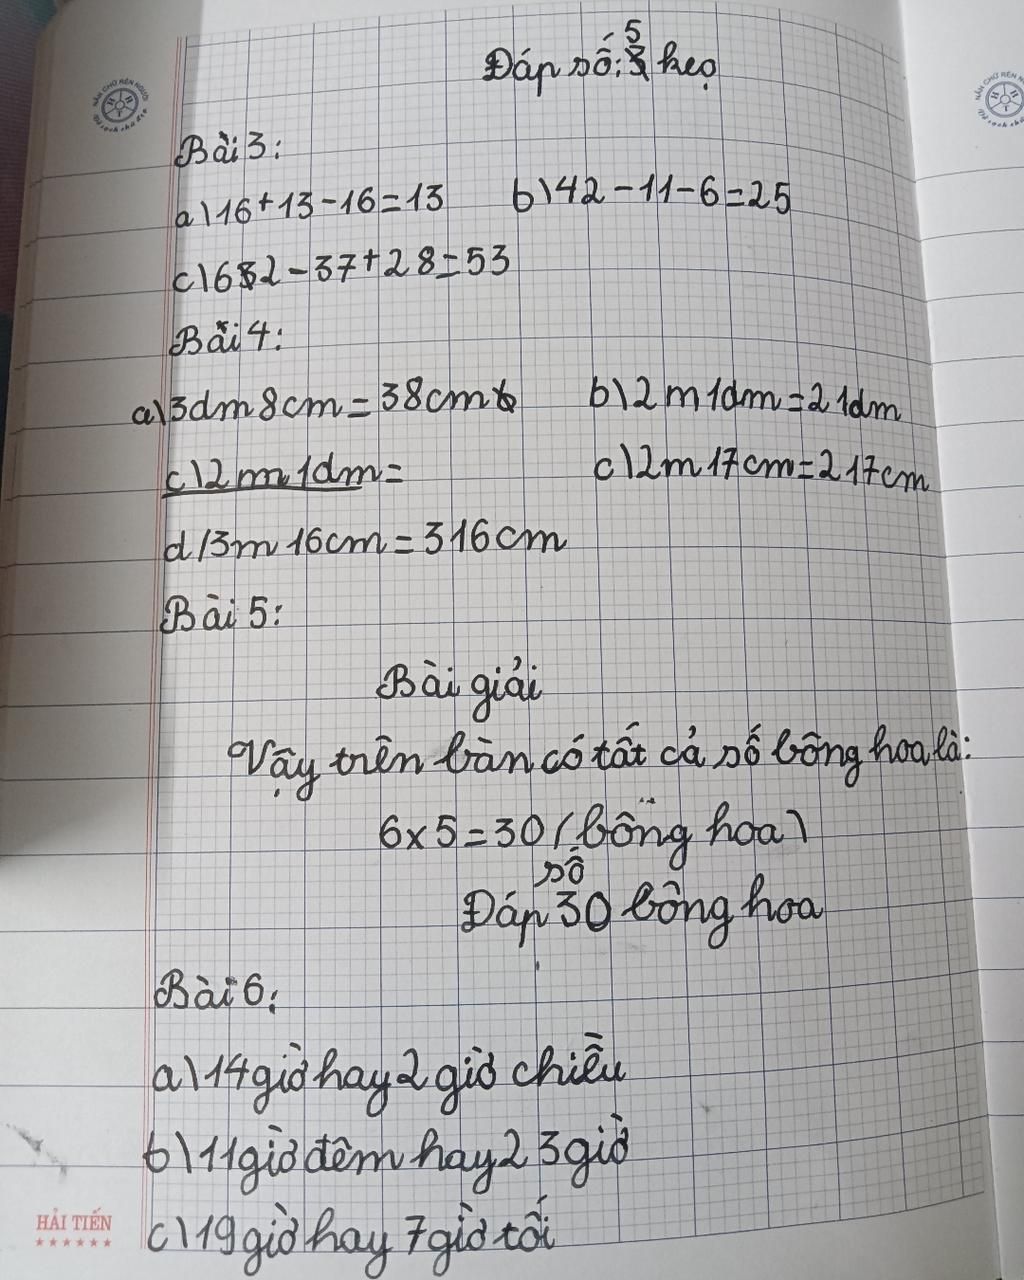 Đáp số: 5 kẹo
Bài 3:
a) 16 + 13 - 16 = 13 b) 42 - 11 - 6 = 25
c) 62 - 37 + 28 = 53
Bài 4:
a) 3dm 8cm = 38cm b) 2m 1dm = 21dm
c) 2m 1dm = c) 2m 17cm = 217cm
d) 3m 16cm = 316cm
Bài 5:
Bài giải
Vậy trên bàn có tất cả số bông hoa là:
6 x 5 = 30 (bông hoa)
Đáp số 30 bông hoa
Bài 6:
a) 14 giờ hay 2 giờ chiều
b) 11 giờ đêm hay 23 giờ
HẢI TIẾN
c) 19 giờ hay 7 giờ tối